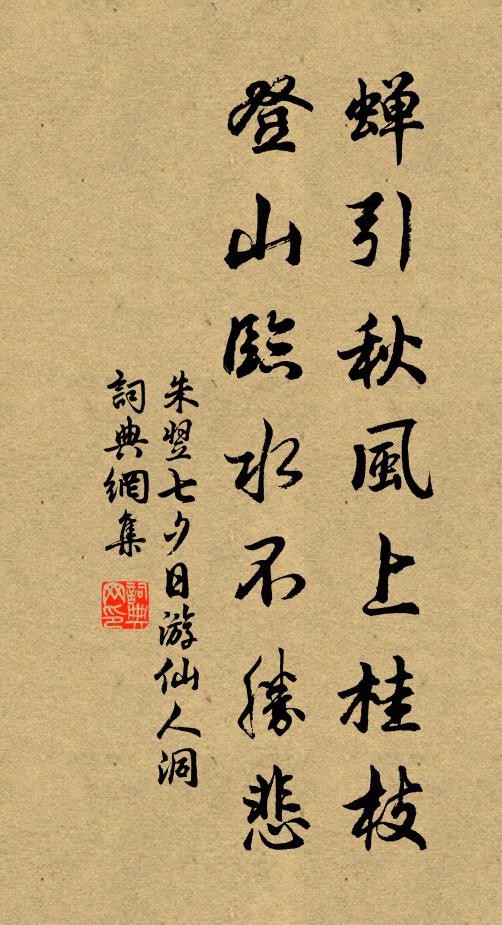 蝉引秋風上桂枝
登山臨水不勝悲
朱翌七夕日游仙人洞
詞典網集
詞典
网印